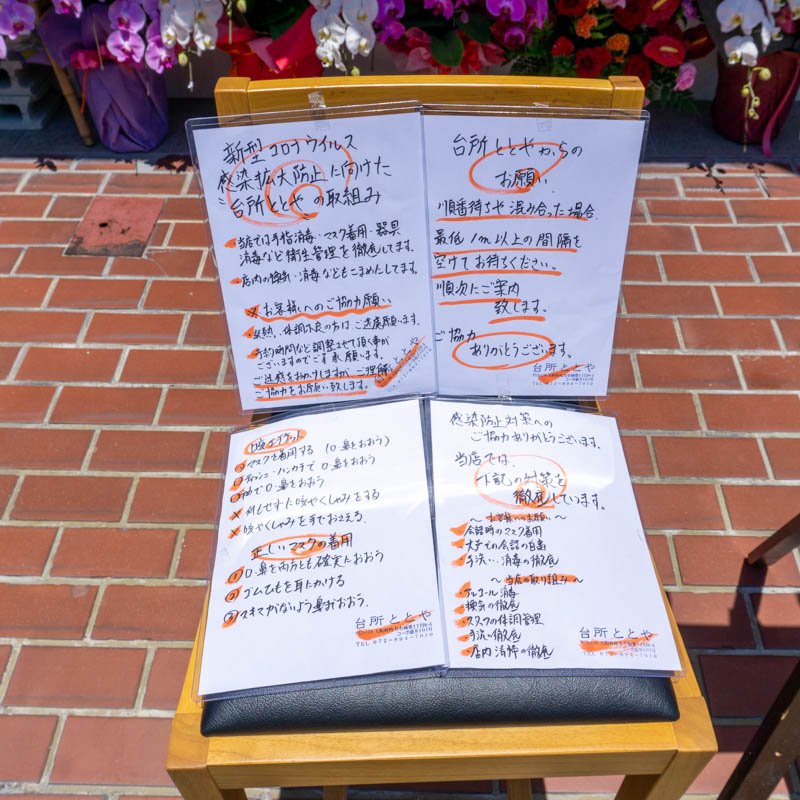 新型コロナウイルス
感染拡大防止に向けた
"台所ととや"の取組み
・当店では手指消毒・マスク着用・器具
消毒など衛生管理を徹底してます。
・店内の換気・消毒などもこまめにしてます。
※お客様へのご協力願い
・発熱、体調不良の方はご遠慮願います。
・予約時間など調整させて頂く事が
ございますのでご了承願います。
ご迷惑をおかけしますがご理解
ご協力をお願い致します。
台所ととやからの
お願い
順番待ちや混み合った場合、
最低1m以上の間隔を
空けてお待ちください。
順次にご案内
致します。
ご協力
ありがとうございます。
台所ととや
TEL 072-894-7010
咳エチケット
○マスクを着用する(口・鼻をおおう)
○ティッシュ・ハンカチで口・鼻をおおう
○袖で口・鼻をおおう
×何もせずに咳やくしゃみをする
×咳やくしゃみを手でおさえる
正しいマスクの着用
①口・鼻を両方とも確実におおう
②ゴムひもを耳にかける
③スキマがないよう鼻までおおう。
台所ととや
TEL 072-894-7010
感染防止対策への
ご協力ありがとうございます。
当店では、
下記の対策を
徹底しています。
〜お客様へのお願い〜
・会話時のマスク着用
・大声での会話の自粛
・手洗い、消毒の徹底
〜当店の取り組み〜
・アルコール消毒
・換気の徹底
・スタッフの体調管理
・手洗いの徹底
・店内清掃の徹底
台所ととや
TEL 072-894-7010